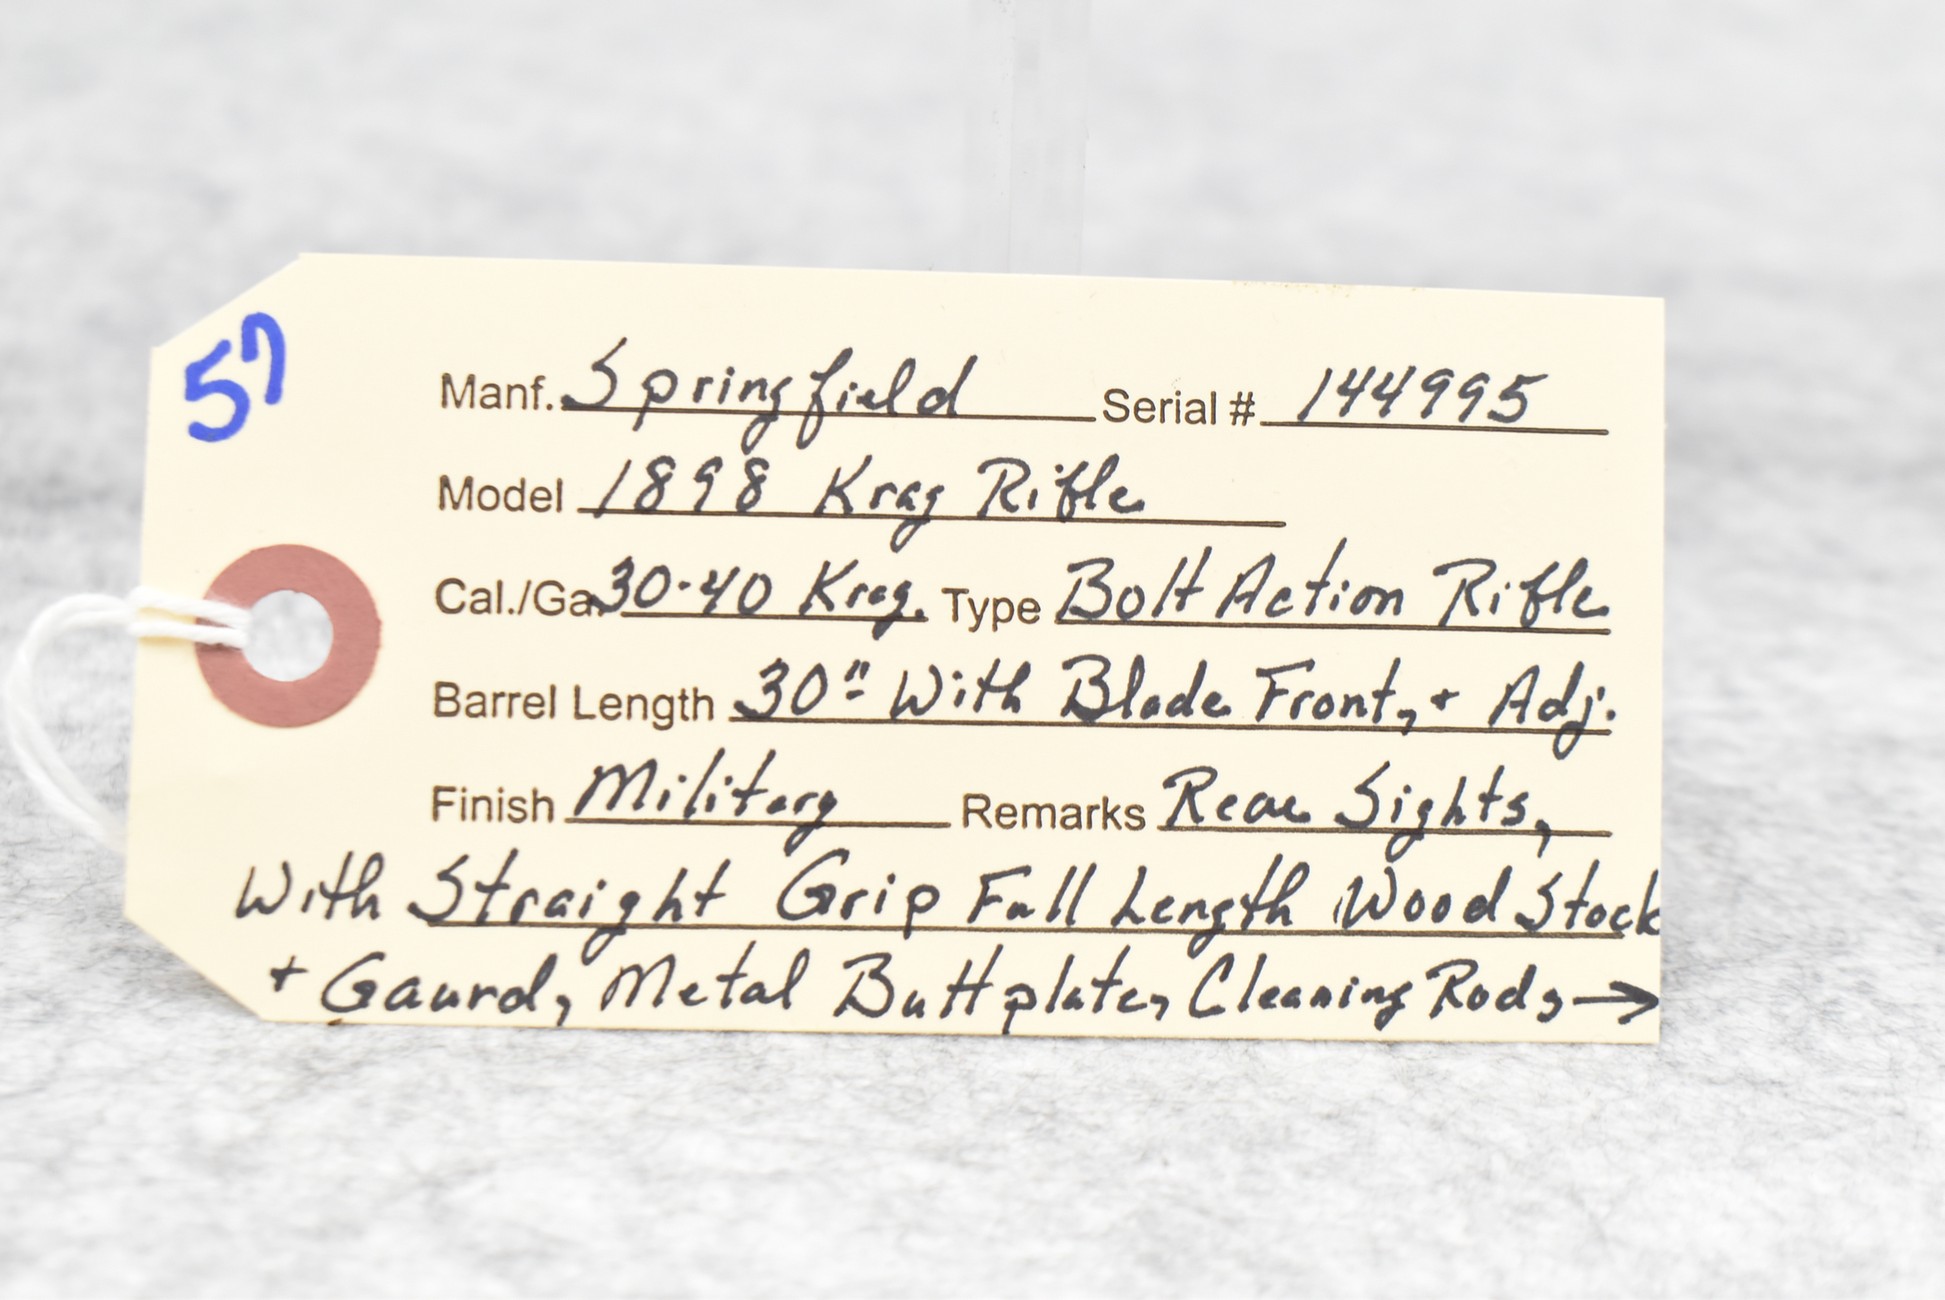 57
Manf. Springfield Serial # 144995
Model 1898 Krag Rifle
Cal./Ga. 30-40 Krag. Type Bolt Action Rifle
Barrel Length 30" With Blade Front, + Adj.
Finish Military Remarks Rear Sights,
With Straight Grip Full Length Wood Stock
+ Gaurd, Metal Buttplate, Cleaning Rods, →